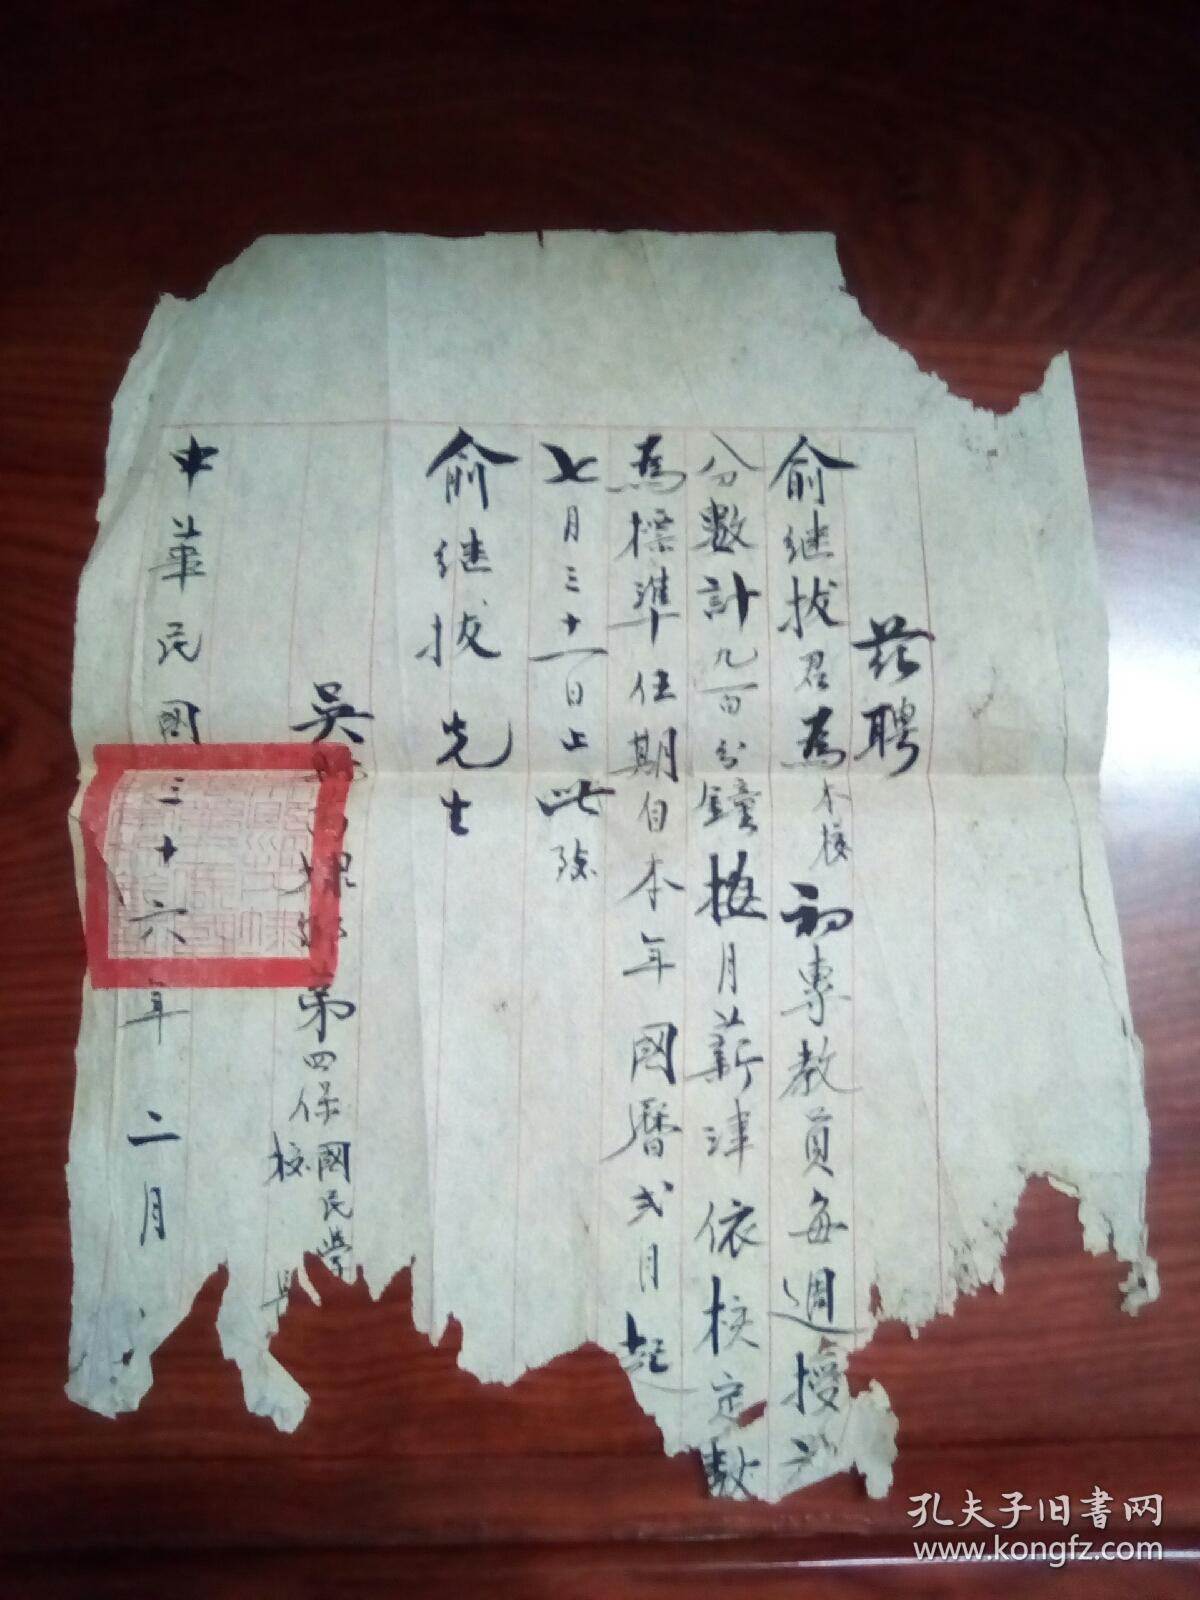 茲聘
俞继拔君為本校初專教員每週授
分數計九百分鐘按月薪津依校定數
為標準任期自本年國曆弍月起
七月三十一日止此
俞继拔先生
吳 第四保國民學
校
中華民國三十六年二月
孔夫子旧书网
www.kongfz.com